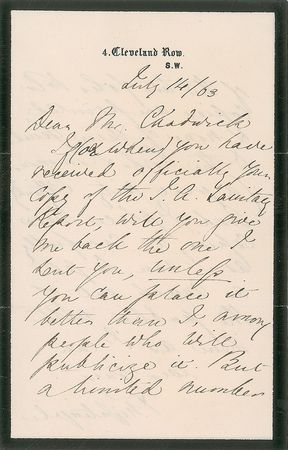 4. Cleveland Row.
S.W.
July 14/63
Dear Mr. Chadwick
If (or when) you have
received officially your
copy of the I. A. Sanitary
Report, will you give
me back the one I
sent you, unless
you can place it
better than I among
people who will
publicize it. But
a limited number